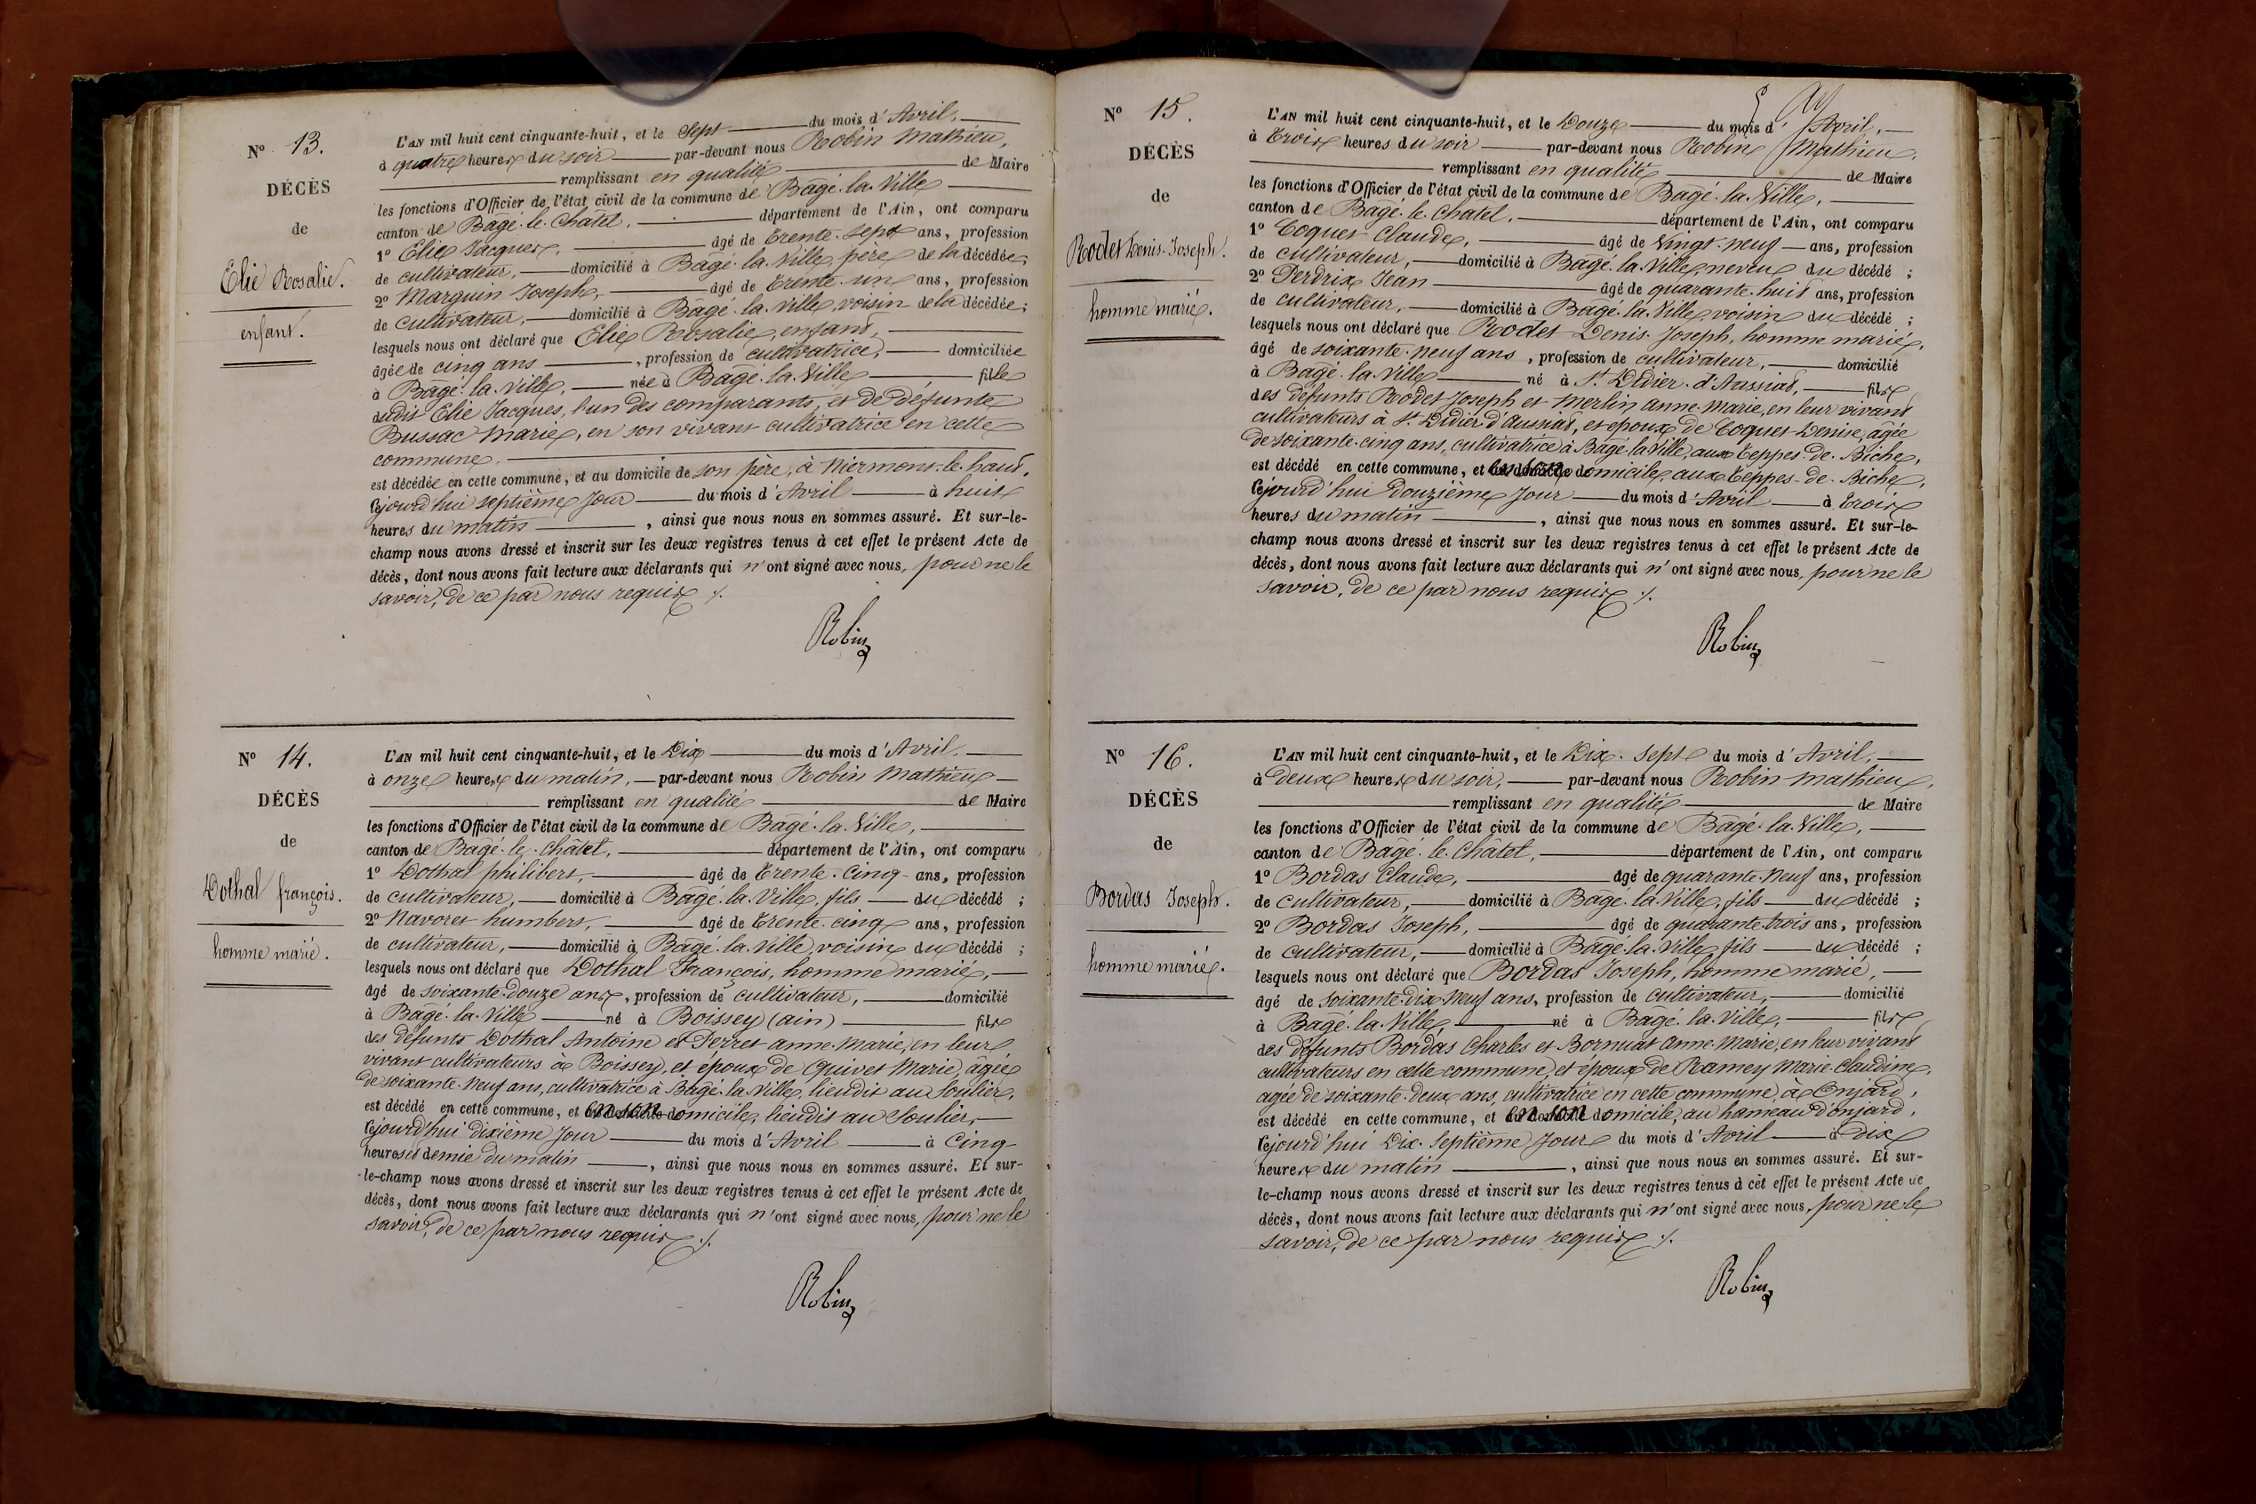 Nº 13.
DÉCÈS
de
Elie Rosalie.
enfant.
L'AN mil huit cent cinquante-huit, et le Sept du mois d'Avril,
à quatre heures du soir par-devant nous Robin Mathieu,
remplissant en qualité de Maire
les fonctions d'Officier de l'état civil de la commune de Bâgé-la-Ville
canton de Bâgé-le-Châtel, département de l'Ain, ont comparu
1º Elie Jacques, âgé de trente-sept ans, profession
de cultivateur, domicilié à Bâgé-la-Ville, père de la décédée;
2º Marguin Joseph, âgé de trente-un ans, profession
de cultivateur, domicilié à Bâgé-la-Ville, voisin de la décédée;
lesquels nous ont déclaré que Elie Rosalie, enfant,
âgée de cinq ans, profession de cultivatrice, domiciliée
à Bâgé-la-Ville, née à Bâgé-la-Ville fille
dudit Elie Jacques, l'un des comparants, et de défunte
Bussac Marie, en son vivant cultivatrice en cette
commune.
est décédée en cette commune, et au domicile de son père, à Niermont-le-haut,
cejourd'hui septième jour du mois d'Avril à huit
heures du matin, ainsi que nous nous en sommes assuré. Et sur-le-
champ nous avons dressé et inscrit sur les deux registres tenus à cet effet le présent Acte de
décès, dont nous avons fait lecture aux déclarants qui n'ont signé avec nous, pour ne le
savoir, de ce par nous requis ./.
Robin
Nº 14.
DÉCÈS
de
Dothal françois.
homme marié.
L'AN mil huit cent cinquante-huit, et le Dix du mois d'Avril.
à onze heures du matin, par-devant nous Robin Mathieu
remplissant en qualité de Maire
les fonctions d'Officier de l'état civil de la commune de Bâgé-la-Ville,
canton de Bâgé-le-Châtel, département de l'Ain, ont comparu
1º Dothal philibert, âgé de trente-cinq ans, profession
de cultivateur, domicilié à Bâgé-la-Ville, fils du décédé;
2º Navoret humbert, âgé de trente-cinq ans, profession
de cultivateur, domicilié à Bâgé-la-Ville, voisin du décédé;
lesquels nous ont déclaré que Dothal François, homme marié,
âgé de soixante-douze ans, profession de cultivateur, domicilié
à Bâgé-la-Ville né à Boissey (ain) fils
des défunts Dothal Antoine et Perret anne-Marie, en leur
vivant cultivateurs à Boissey, et époux de Quivet Marie, âgée
de soixante-neuf ans, cultivatrice à Bâgé-la-Ville, lieudit au Soulier,
est décédé en cette commune, et en son domicile, lieudit au Soulier,
cejourd'hui dixième jour du mois d'Avril à Cinq
heures et demie du matin, ainsi que nous nous en sommes assuré. Et sur-
le-champ nous avons dressé et inscrit sur les deux registres tenus à cet effet le présent Acte de
décès, dont nous avons fait lecture aux déclarants qui n'ont signé avec nous, pour ne le
savoir, de ce par nous requis ./.
Robin
Nº 15.
DÉCÈS
de
Rodet Denis-Joseph.
homme marié.
L'AN mil huit cent cinquante-huit, et le Douze du mois d'Avril,
à trois heures du soir par-devant nous Robin Mathieu,
remplissant en qualité de Maire
les fonctions d'Officier de l'état civil de la commune de Bâgé-la-Ville,
canton de Bâgé-le-Châtel, département de l'Ain, ont comparu
1º Coquet Claude, âgé de vingt-neuf ans, profession
de cultivateur, domicilié à Bâgé-la-Ville, neveu du décédé;
2º Perdrix Jean âgé de quarante-huit ans, profession
de cultivateur, domicilié à Bâgé-la-Ville, voisin du décédé;
lesquels nous ont déclaré que Rodet Denis-Joseph, homme marié,
âgé de soixante-neuf ans, profession de cultivateur, domicilié
à Bâgé-la-Ville né à St Didier-d'Aussiat, fils
des défunts Rodet Joseph et Merlin anne-Marie, en leur vivant
cultivateurs à St Didier-d'aussiat, et époux de Coquet Denise, âgée
de soixante-cinq ans, cultivatrice à Bâgé-la-Ville, aux Teppes-de-Biche,
est décédé en cette commune, et en son domicile, aux Teppes-de-Biche,
cejourd'hui Douzième jour du mois d'Avril à trois
heures du matin, ainsi que nous nous en sommes assuré. Et sur-le-
champ nous avons dressé et inscrit sur les deux registres tenus à cet effet le présent Acte de
décès, dont nous avons fait lecture aux déclarants qui n'ont signé avec nous, pour ne le
savoir, de ce par nous requis ./.
Robin
Nº 16.
DÉCÈS
de
Bordas Joseph.
homme marié.
L'AN mil huit cent cinquante-huit, et le Dix-Sept du mois d'Avril,
à deux heures du soir, par-devant nous Robin Mathieu,
remplissant en qualité de Maire
les fonctions d'Officier de l'état civil de la commune de Bâgé-la-Ville,
canton de Bâgé-le-Châtel, département de l'Ain, ont comparu
1º Bordas Claude, âgé de quarante-neuf ans, profession
de cultivateur, domicilié à Bâgé-la-Ville, fils du décédé;
2º Bordas Joseph, âgé de quarante-trois ans, profession
de cultivateur, domicilié à Bâgé-la-Ville, fils du décédé;
lesquels nous ont déclaré que Bordas Joseph, homme marié,
âgé de soixante-dix-neuf ans, profession de cultivateur, domicilié
à Bâgé-la-Ville, né à Bâgé-la-Ville, fils
des défunts Bordas Charles et Bornuat Anne-Marie, en leur vivant
cultivateurs en cette commune, et époux de Ramey Marie-Claudine,
agée de soixante-deux ans, cultivatrice en cette commune, à Onjard,
est décédé en cette commune, et en son domicile, au hameau d'onjard,
cejourd'hui Dix-Septième jour du mois d'Avril à dix
heures du matin, ainsi que nous nous en sommes assuré. Et sur-
le-champ nous avons dressé et inscrit sur les deux registres tenus à cet effet le présent Acte de
décès, dont nous avons fait lecture aux déclarants qui n'ont signé avec nous, pour ne le
savoir, de ce par nous requis ./.
Robin